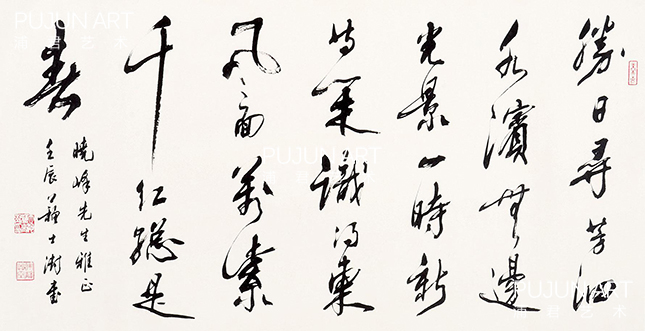 勝日尋芳泗
水濱無邊
光景一時新
等閒識得東
風面萬紫
千紅總是
春
曉峰先生雅正
壬辰蘇士澍書
PUJUN ART
浦君艺术
PUJUN ART
PUJUN ART